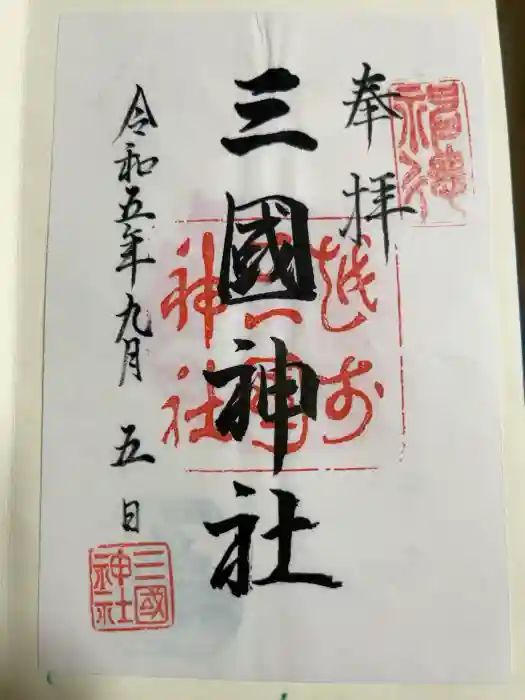 奉拝
福徳
越前
三國
神社
三國神社
令和五年九月五日
三國
神社